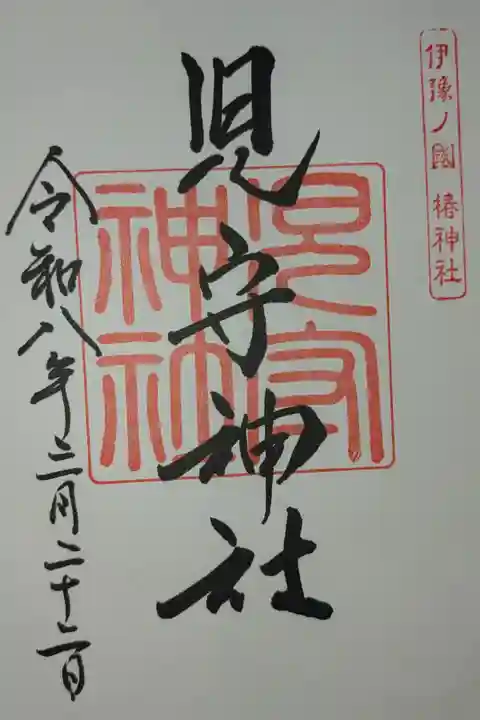 伊豫ノ國 椿神社
児守神社
児守神社
令和八年二月二十二日